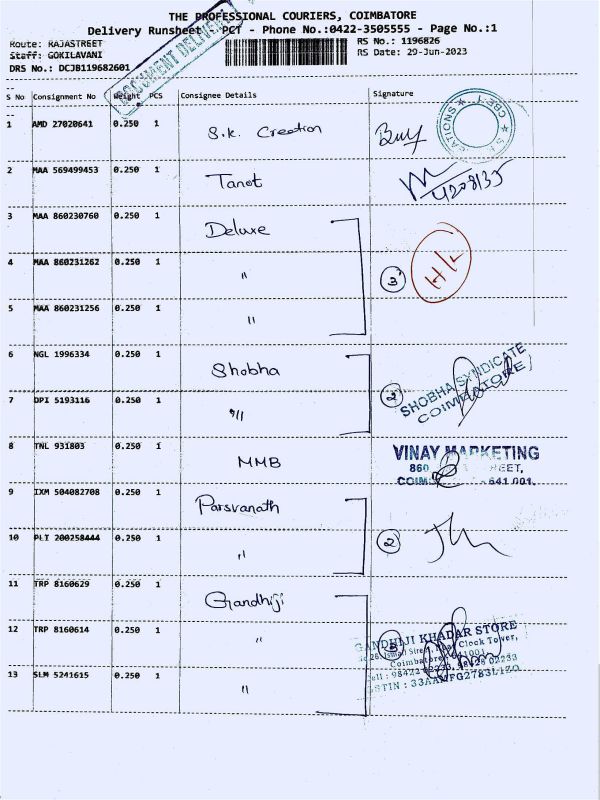 THE PROFESSIONAL COURIERS, COIMBATORE
Delivery Runsheet - PCT - Phone No.:0422-3505555 - Page No.:1
Route: RAJASTREET
RS No.: 1196826
Staff: GOKILAVANI
RS Date: 29-Jun-2023
DRS No.: DCJB119682601
DOCUMENT DELIVERY
S No Consignment No Weight PCS Consignee Details Signature
1 AMD 27020641 0.250 1 S.K. Creation
2 MAA 569499453 0.250 1 Tanot
3 MAA 860230760 0.250 1 Deluxe
4 MAA 860231262 0.250 1 " 3
5 MAA 860231256 0.250 1 "
6 NGL 1996334 0.250 1 Shobha
SHOBHA SYNDICATE
COIMBATORE
7 DPI 5193116 0.250 1 " 2
8 TNL 931803 0.250 1 MMB
VINAY MARKETING
860 STREET,
641 001.
9 IXM 504082708 0.250 1 Parsvanath
10 PLT 200258444 0.250 1 " 2
11 TRP 8160629 0.250 1 Gandhiji
12 TRP 8160614 0.250 1 " 3
GANDHIJI KHADAR STORE
Clock Tower,
Coimbatore
13 SLM 5241615 0.250 1 "